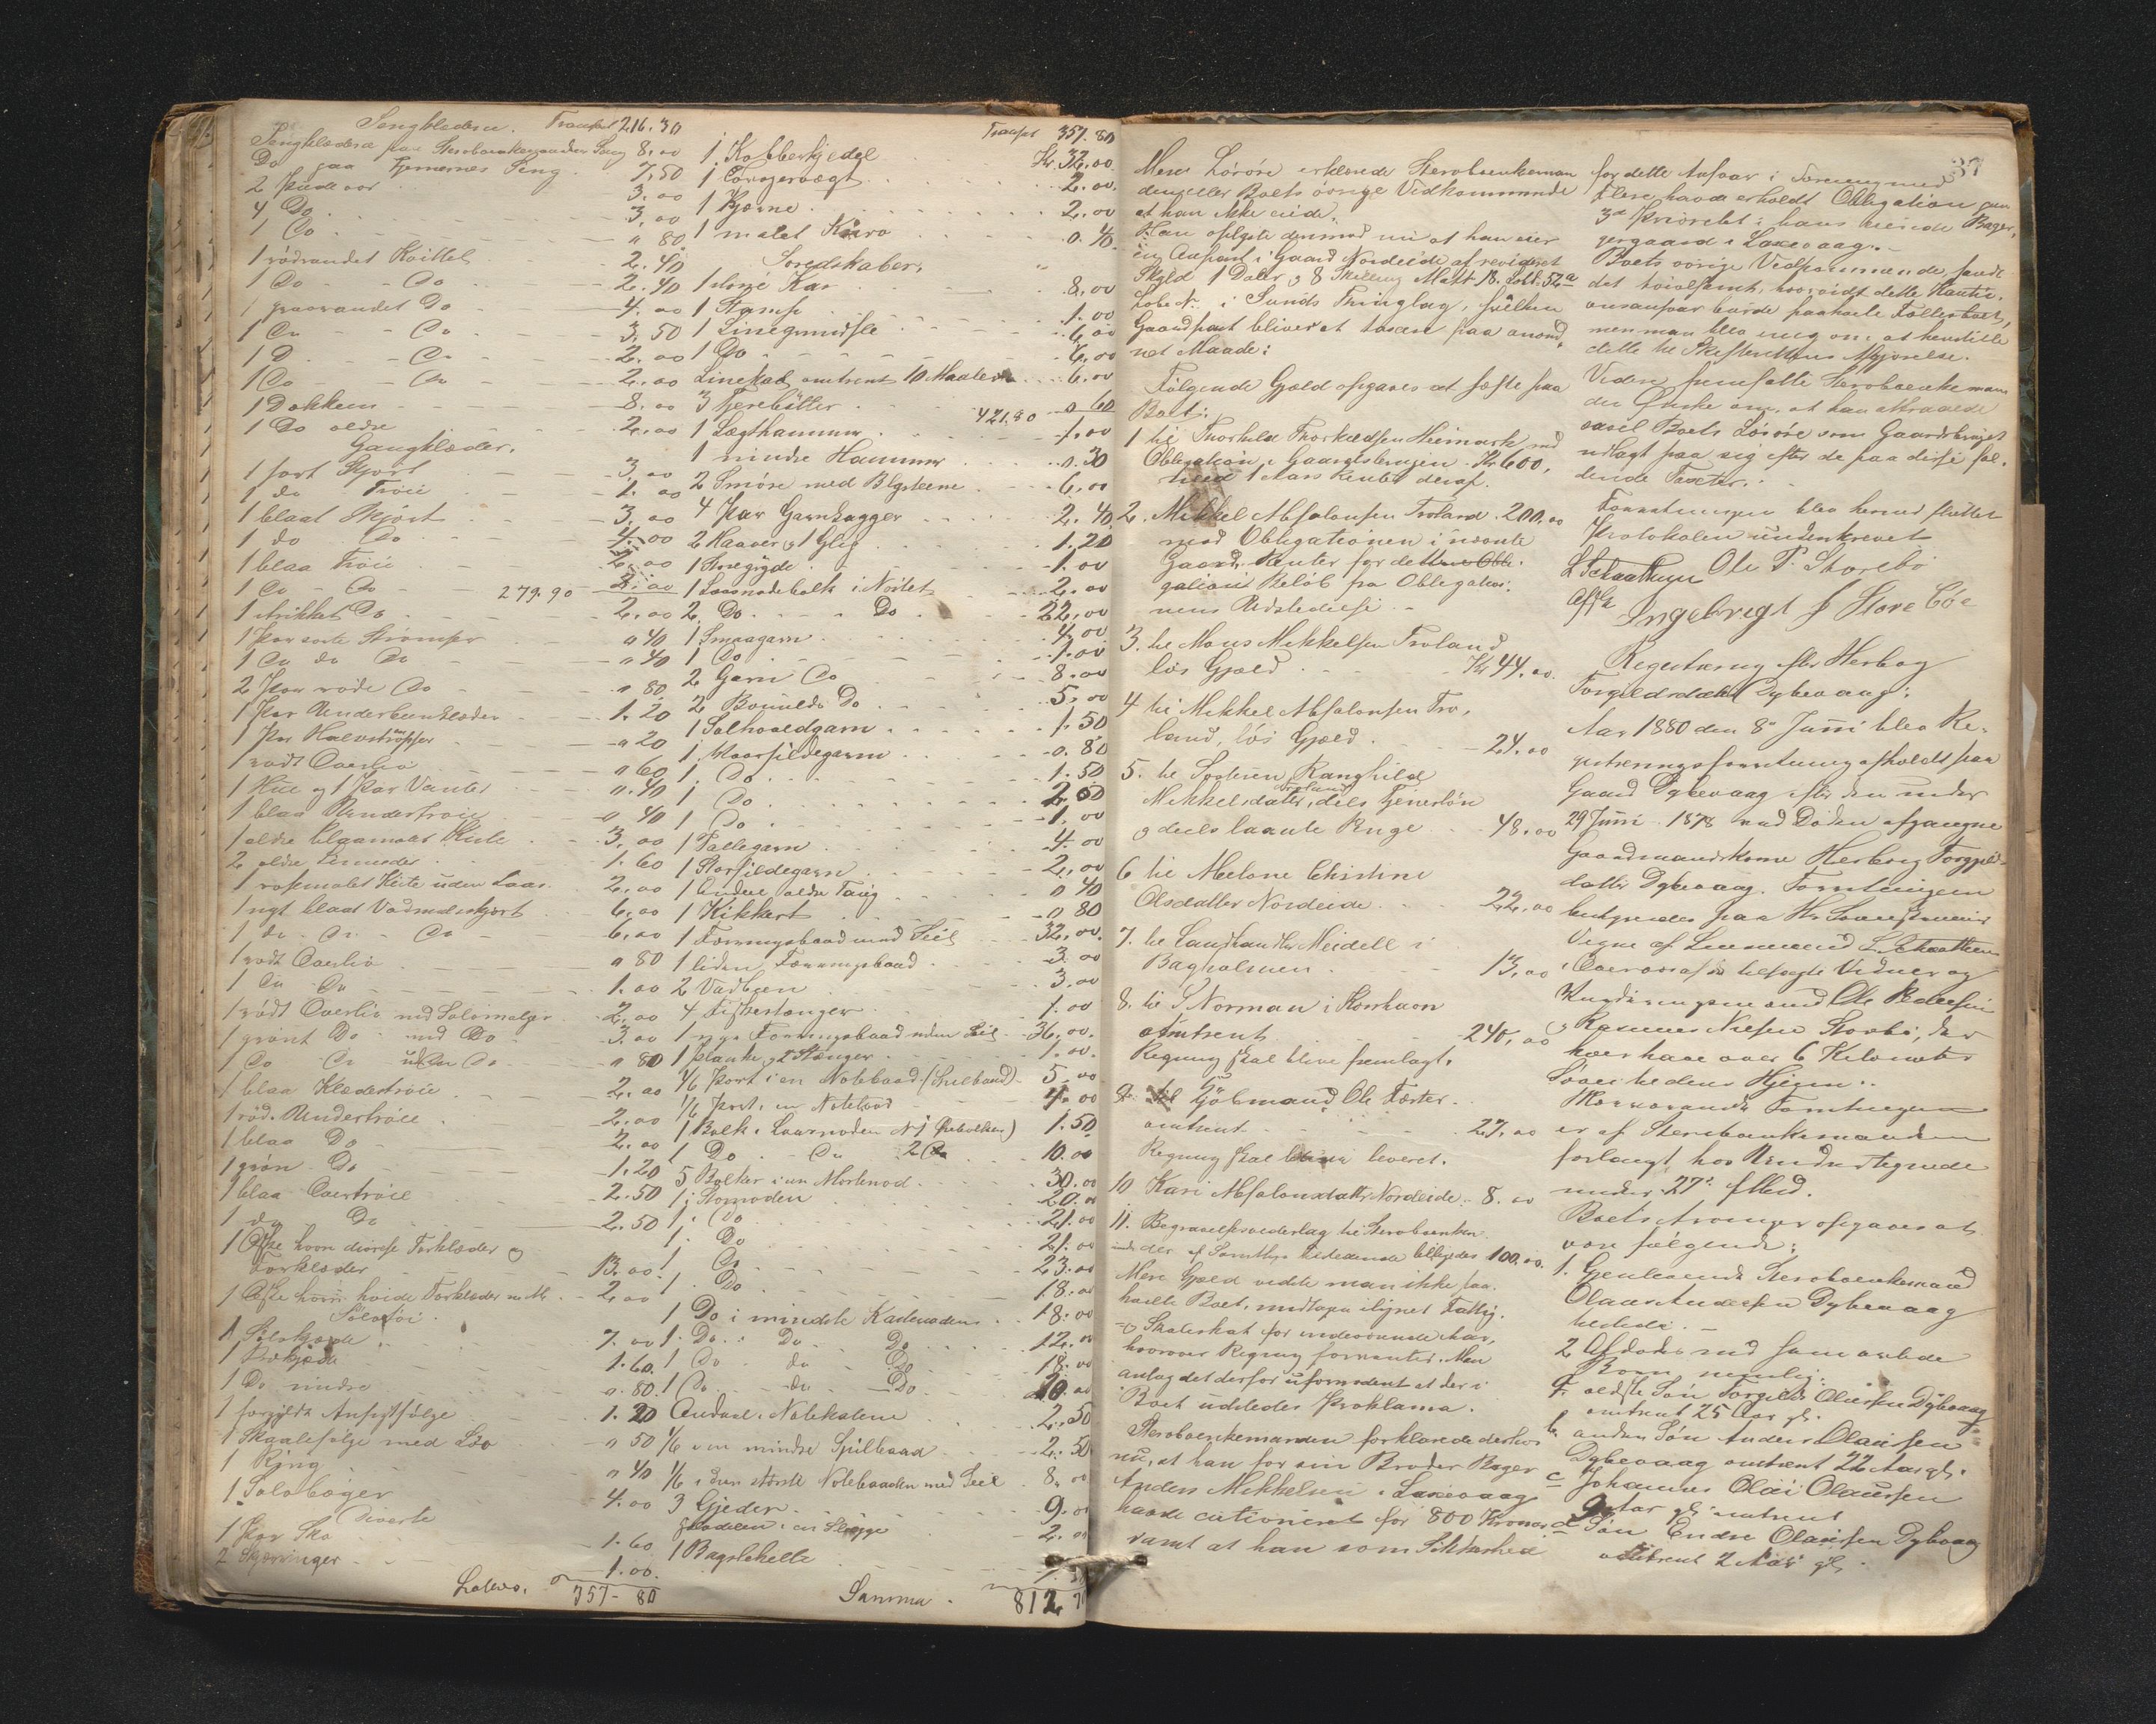 Sengklæder. Transport 216.30
Sengklædera paa Sterboenkemandens Seng 8,00
Do paa Tjenernes Seng 7,50
2 Pudevor 3.00
4 Do 3,00
1 Do " 80
1 rödrandet Kvittel 2.40
1 Do Do 2.40
1 graarandet Do 4.00
1 Do Do 3,50
1 Do Do 2.00
1 Do Do 2,00
1 Dækken 8.00
1 Do ældre 2.00
Gangklæder.
1 sort Skjört 3,00
1 do Tröie 1.00
1 blaat Skjört 3,00
1 do Do 4.00
1 blaa Tröie 2,00
1 Do Do 279.90 2.00
1 strikket Do 2,00
1 Par sorte Strömper " 40
1 Do do Do " 40
2 Par röde Do " 80
1 Par Underbenklæder 1.20
1 Par Halvströmper " 20
1 rödt Overliv " 60
1 Hue og 1 Par Vanter " 40
1 blaa Undertröie " 40
1 ældre blaamalet Kiste 3,00
2 ældre 1.60
1 rosemalet Kiste uden Laas 2,00
1 nyt blaat Vadmelskjört 6,00
1 do Do Do 6,00
1 rödt Overliv " 80
1 Do Do 1.00
1 rödt Overliv med Sölvmalger 2,00
1 grönt Do med Do 3.00
1 Do Do uden Do " 80
1 blaa Klædeströie 2,00
1 röd Undertröie 2,00
1 blaa Do 2,00
1 grön Do 1.20
1 blaa Overtröie 2.50
1 do Do 2.50
1 Æske hvori diverse Forklæder og
Torklæder 13.00
1 Æske hvori hvide Torklæder m. M. 2,00
Sölvtöi.
1 Sölvkjæde 7.00
1 1.60
1 Do mindre " 80
1 forgyldt Ansigtsölge 1.20
1 Skaalesölge med Löv " 50
1 Ring " 40
1 Sölvbæger 4.00
Diverse
1 Par Sko 1.60
2 1.00
Lateris. 357-80
Transpt 357.80
1 Kobberkjedel Kr 32,00
1 2.00
1 Kjerne 2,00
1 malet Kurv 0.40
Søredskaber.
1 större Kar 8,00
1 Stamp 1.00
1 6,00
1 Do 6,00
Linekab omtrent 10 6.00
3 421.80 0 60
1 Lægthammer 1.00
1 mindre Hammer 0.30
2 Snöre med Blysteene 6,00
4 Par Garnlagger 2.40
2 Haaver og 1 Glip 1.20
1 1.00
1 Laasnodebolk i Notet 2,00
2 Do Do 22,00
1 Smaagarn 4.00
1 Do 1.00
2 Garn Do 8.00
2 Bomulds Do 5,00
1 Solhovedgarn 1.50
1 Vaarsildegarn 0.80
1 Do 1.50
1 Do 2 00
1 Do 1.00
1 Fallegarn 4.00
1 Storsildegarn 2,00
1 Andeel ældre Toug " 40
1 Kikkert " 80
1 Færingsbaad med Seil 32,00
1 liden Færingsbaad 3.00
2 Vadbeen 3,00
4 Fiskestænger 1.00
1 nyt Færingsbaad uden Seil 36,00.
1 Planke og 2 Stænger 1.00.
1/6 Part i en Notebaad (Spilbaad) 5.00
1/6 Part i en Notebaad 4.00
1 Bolk i Laasnoden N 1 1.50
1 Do Do 2 Do 10.00
5 Bolker i en Mortenod 30.00
1 i Stornoden 20.00
1 Do 21.00
1 Do 21.00
1 Do 23.00
1 Do 18.00
1 Do i mindste Kastenoden 18.00
1 Do Do Do 12.00
1 Do do Do 18.00
1 Do do Do 20.00
Andeel i Notekalene 2,50
1/6 i en mindre Spilbaad 2.50
1/6 i den störste Notebaaden med Seil 8.00
3 Gjeder 9.00
Andelen i en Slæpe 2.00
1 Bagstehelle
Summa 812
37
Mere Lösöre erklærede Sterboenkeman
den eller Boets övrige Vedkommende
at han ikke eiede.
Han oplyste derimod nu at han eier
en Anpart i Gaard Nordeide af revideret
Skyld 1 Daler og 8 Skilling Matr 18. Fol. 52a
Löbe N. i Sunds Thinglag, hvilken
Gaardpart bliver at taxere paa anord,
net Maade:
Fölgende Gjæld opgaves at hefte paa
Boet:
1 til Thorkild Thorkildsen Heimark med
Obligation i Gaardsbruget Kr 600.
med 1 Aars Renter deraf.
2. Mikkel Absalonsen Troland 200.00
med Obligationen i nævnte
Gaard. Renter for dette Obli-
gations Belöb fra Obligatio:
nens Udstedelse.
3. til Mons Mikkelsen Troland
lös Gjæld Kr 44.00.
4 til Mikkel Absalonsen Tro,
land, lös Gjæld 24.00
5. til Ranghild
Mikkelsdatter Troland, dels Tjenestelön
og deels laante Penge 48.00
6 til Malene Christine
Olsdatter Nordeide 22.00
7. til Landhandler Meidell i
Bagholmen 13,00
8. til S Norman i Korshavn
omtrent 240,00
Regning skal blive fremlagt.
9. til Ole Færter
omtrent 27,00
Regning skal blive leveret.
10 Kari Absalonsdatter Nordeide 8.00
11. Begravelsesvederlag til Sterboenke-
manden der af Samtlige tilstedeværende billigedes 100.00.
Mere Gjæld vidste man ikke paa
hvilte Boet, undtagen ilignet Fattig-
og Skoleskat for indeværende Aar,
hvorover Regning forventes. Man
antog det derfor ufornödent at der i
Boet udstedes Proklama.
Sterboenkemanden forklarede derhos
nu, at han for sin Broder Bager
Anders Mikkelsen i Laxevaag
havde cautioneret for 800 Kroner,
samt at han som Sikkerhed
for dette Ansvar i Forening med
Flere havde erholdt Obligation paa
3die Prioritet i hans eiende Bager,
gergaard i Laxevaag.
Boets övrige Vedkommende fandt
det tvivlsomt, hvorvidt dette Kauti-
onsansvar burde paahvile Fællesboet,
men man blev enig om at henstille
dette til Skifterettens Afgjörelse.
Videre fremsatte Sterboenkeman
den Önske om, at han attraaede
saavel Boets Lösöre som Gaardsbruget
udlagt paa sig efter de paa disse fal,
dende Taxter.
Forretningen blev hermed sluttet
Protokolen underskrevet
L Schaathun Ole P. Storebö
Afft
Ingebregt J Storeböe
Registrering efter Herborg
Torgildsdatter Dybevaag:
Aar 1880 den 8de Juni blev Re-
gistreringsforretning afholdt paa
Gaard Dybevaag efter den under
29 Juni 1878 ved Döden afgangne
Gaardmandskone Herborg Torgils-
datter Dybevaag. Forretningen
betjentes paa Hr Sorenskriverens
Vegne af Lensmand L. Schaathun
i Overvær af de tilsagte Vidner og
Vurderingsmænd Ole Pedersen
og Rasmus Nilsen Storebö, der
hver have over 6 Kilometer
Söveis hedens Hjem.
Nærværende Forretningen
er af Sterboenkemanden
forlangt hos Undertegnede
under 27de f. Md.
Boets Arvinger opgaves at
være fölgende:
1. Gjenlevende Sterboenkemand
Olaus Andersen Dybevaag
tilstede.
2 Afdödes med ham avlede
Børn nemlig:
a. ældste Sön Torgild Olaisen Dybevaag
omtrent 25 Aar gl.
b. anden Sön Anders Olaisen
Dybevaag omtrent 22 Aar gl.
c Johannes Olai Olausen
9 Aar gl. omtrent
d Sön Endre Olaisen Dybvaag
omtrent 2 Aar gl.